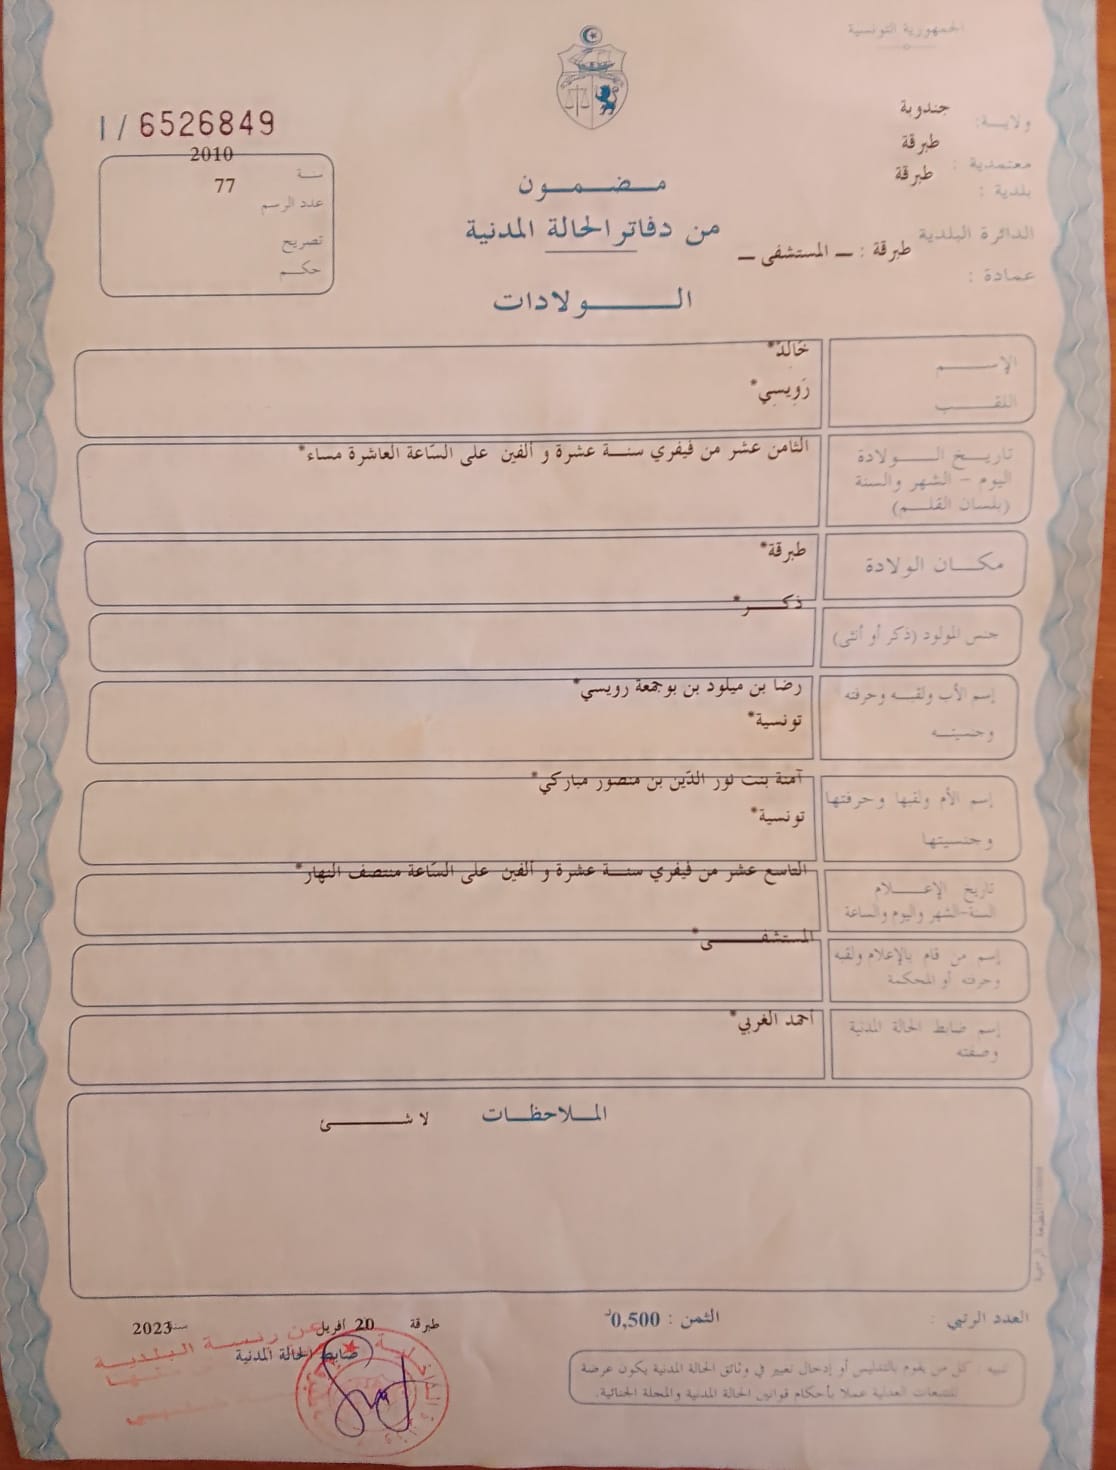 الجمهورية التونسية
ولايـــة: جندوبة
معتمدية : طبرقة
بلدية : طبرقة
الدائرة البلدية : طبرقة ــ المستشفى ــ
عمادة :
I / 6526849
سنة 2010
عدد الرسم 77
تصريح
حكم
مـضـمـون
من دفاتر الحالة المدنية
الـــولادات
الإســـم خَالِدْ*
اللقـــب رْوِيسِي*
تاريـخ الـــولادة الثامن عشر من فيفري سنــة عشرة و ألفين على السّاعة العاشرة مساء*
اليوم - الشهر والسنة
(بلسان القلـــم)
مكــان الولادة طبرقة*
جنس المولود (ذكر أو أنثى) ذكـــر*
إسم الأب ولقبـه وحرفته رضا بن ميلود بن بوجمعة رويسي*
وجنسيتـــه تونسية*
إسم الأم ولقبها وحرفتها آمنة بنت نور الدّين بن منصور مباركي*
وجنسيتها تونسية*
تاريخ الإعـــلام التاسع عشر من فيفري سنــة عشرة و ألفين على السّاعة منتصف النهار*
السنة-الشهر واليوم والساعة
إسم من قام بالإعلام ولقبه المستشفـــى*
وحرفته أو المحكمة
إسم ضابط الحالة المدنية أحمد الغربي*
وصفته
المـلاحظـات لا شـــئ
العدد الرتبي :
الثمن : 0,500د
طبرقة 20 أفريل سنة 2023
ضابط الحالة المدنية
عن رئيسة البلدية
تنبيه : كل من يقوم بالتدليس أو إدخال تغيير في وثائق الحالة المدنية يكون عرضة
للتتبعات العدلية عملا بأحكام قوانين الحالة المدنية والمجلة الجنائية.